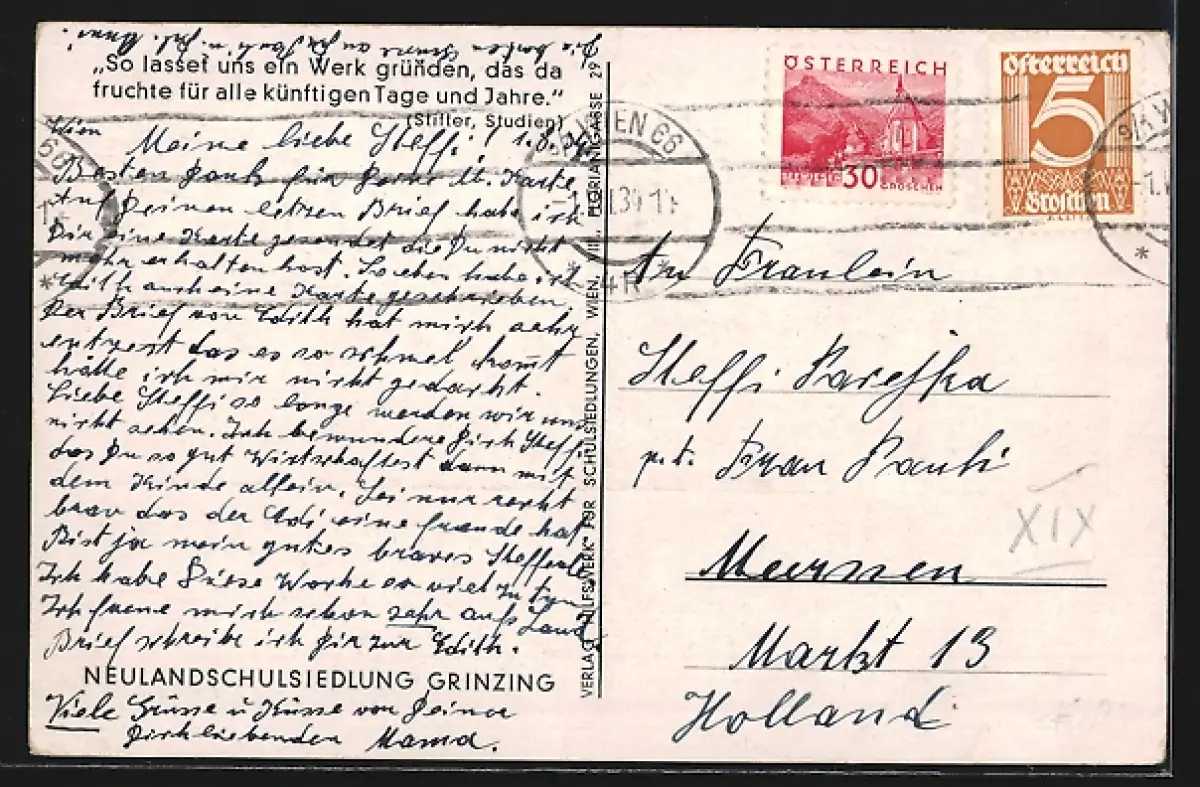 „So lasset uns ein Werk gründen, das da
fruchte für alle künftigen Tage und Jahre."
(Stifter, Studien)
Wien 1.8.34
Meine liebe Steffi!
Besten Dank für Deine lb. Karte.
Auf Deinen letzen Brief habe ich
Dir eine Karte gesendet die Du nicht
mehr erhalten hast. Soeben habe ich
Edith auch eine Karte geschrieben.
Der Brief von Edith hat mich sehr
entzest das es so schnel komt
hätte ich mir nicht gedacht.
Liebe Steffi so lange werden wir uns
nicht sehen. Ich bewundere Dich Steffi
das Du so gut Wirtschaftest dann mit
dem Kinde allein. Sei nur recht
brav das der Edi eine freude hat
Bist ja mein gutes braves Stefferl
Ich habe Diese Woche so viel zu tun
Ich freue mich schon sehr aufs Land
Brief schreibe ich Dir zur Edith.
NEULANDSCHULSIEDLUNG GRINZING
Viele Grüsse u Küsse von Deiner
Dich liebenden Mama.
VERLAG „HILFSWERK" FÜR SCHULSIEDLUNGEN, WIEN, VIII. FLORIANIGASSE 29
ÖSTERREICH
30
GROSCHEN
Österreich
5
Groschen
WIEN 66
34
An Fraulein
Steffi
p.A. Frau Pauli
Meerssen
Markt 13
Holland
XIX